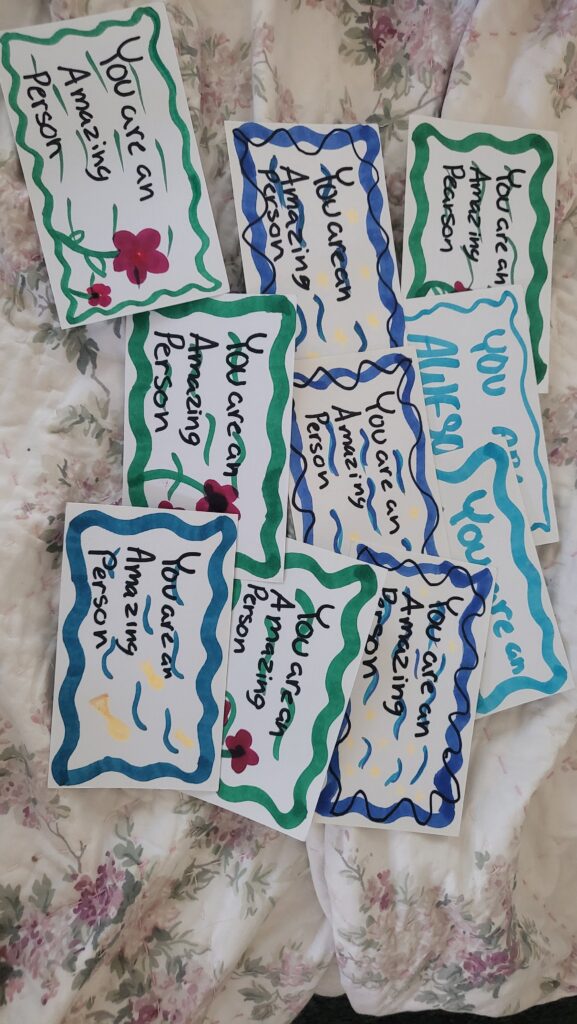 You are an
Amazing
Person
You are an
Amazing
Person
You are an
Amazing
Pearson
You are an
Amazing
Person
You are an
Amazing
Person
YOU
AWESO
You are an
You are an
Amazing
Person
You are an
Amazing
Person
You are an
Amazing
Person